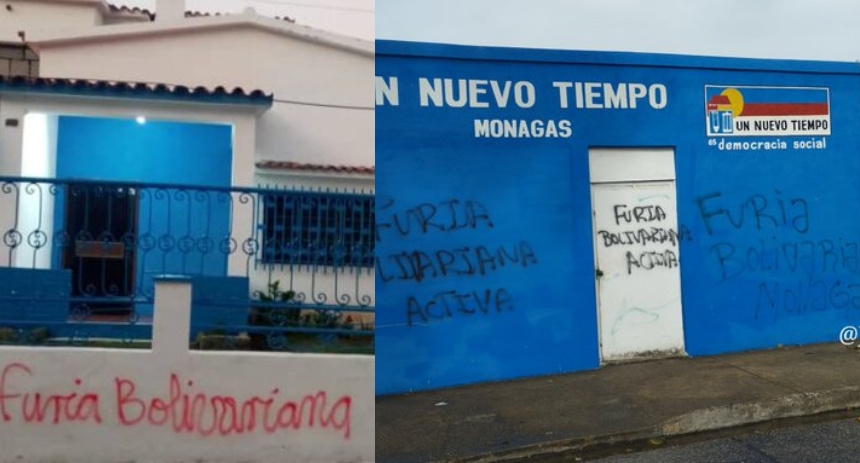 Furia Bolivariana
N NUEVO TIEMPO
MONAGAS
UN NUEVO TIEMPO
es democracia social
FURIA
BOLIVARIANA
ACTIVA
FURIA
LIVARIANA
ACTIVA
Furia
Bolivaria
Monaga
@